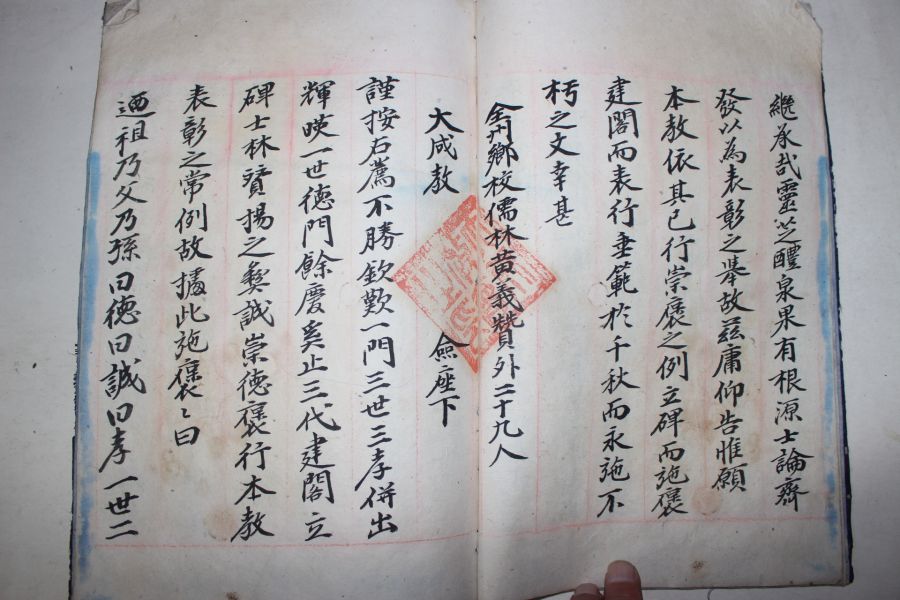 繼承哉靈芝醴泉果有根源士論齊
發以為表彰之擧故玆庸仰告惟願
本敎依其已行崇褒之例立碑而施褒
建閣而表行垂範於千秋而永施不
朽之文幸甚
全州鄕校儒林黃義贊外二十九人
大成敎 僉座下
謹按右薦不勝欽歎一門三世三孝併出
輝暎一世德門餘慶奚止三代建閣立
碑士林賛揚之斃誠崇德褒行本敎
表彰之常例故據此施褒〻曰
迺祖乃父乃孫曰德曰誠曰孝一世二